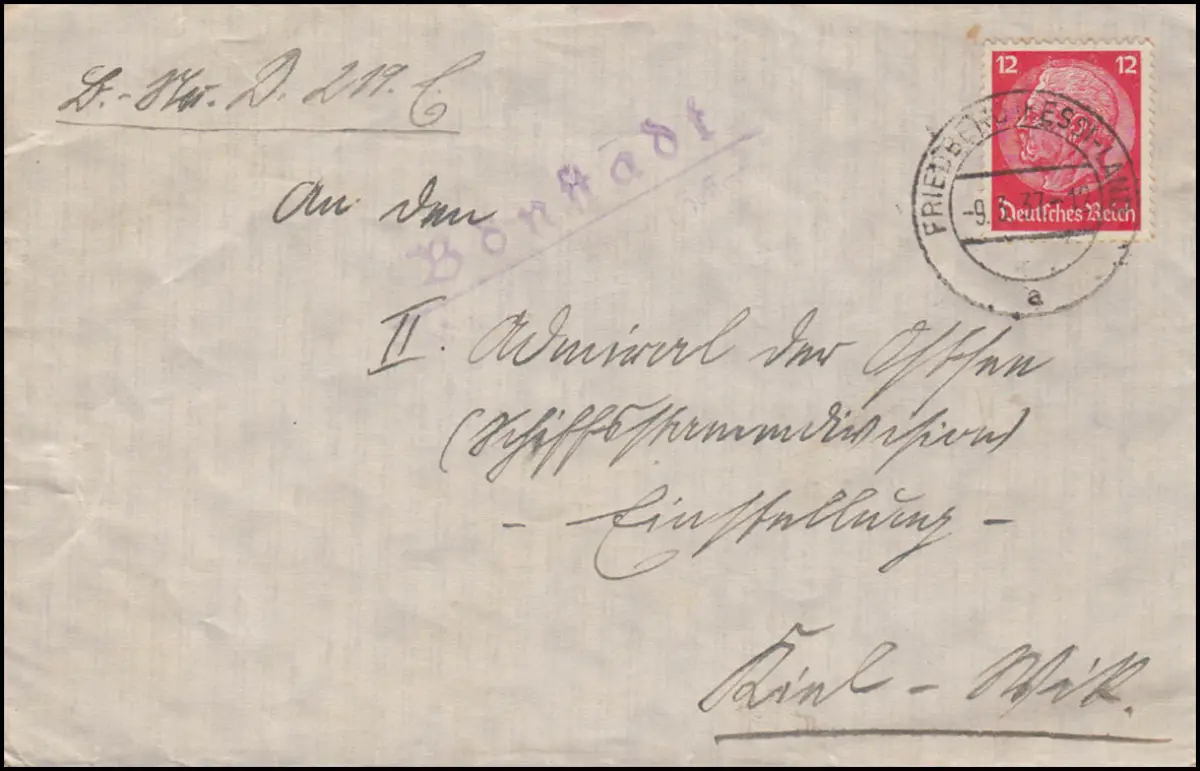 B.-Nr. D. 219. E.
12 12
Deutsches Reich
FRIEDBERG (HESS)-LAND
-9. 37-
a
Bönstadt
An den
II. Admiral der Ostsee
(Schiffsstammdivision)
- Einstellung -
Kiel - Wik.